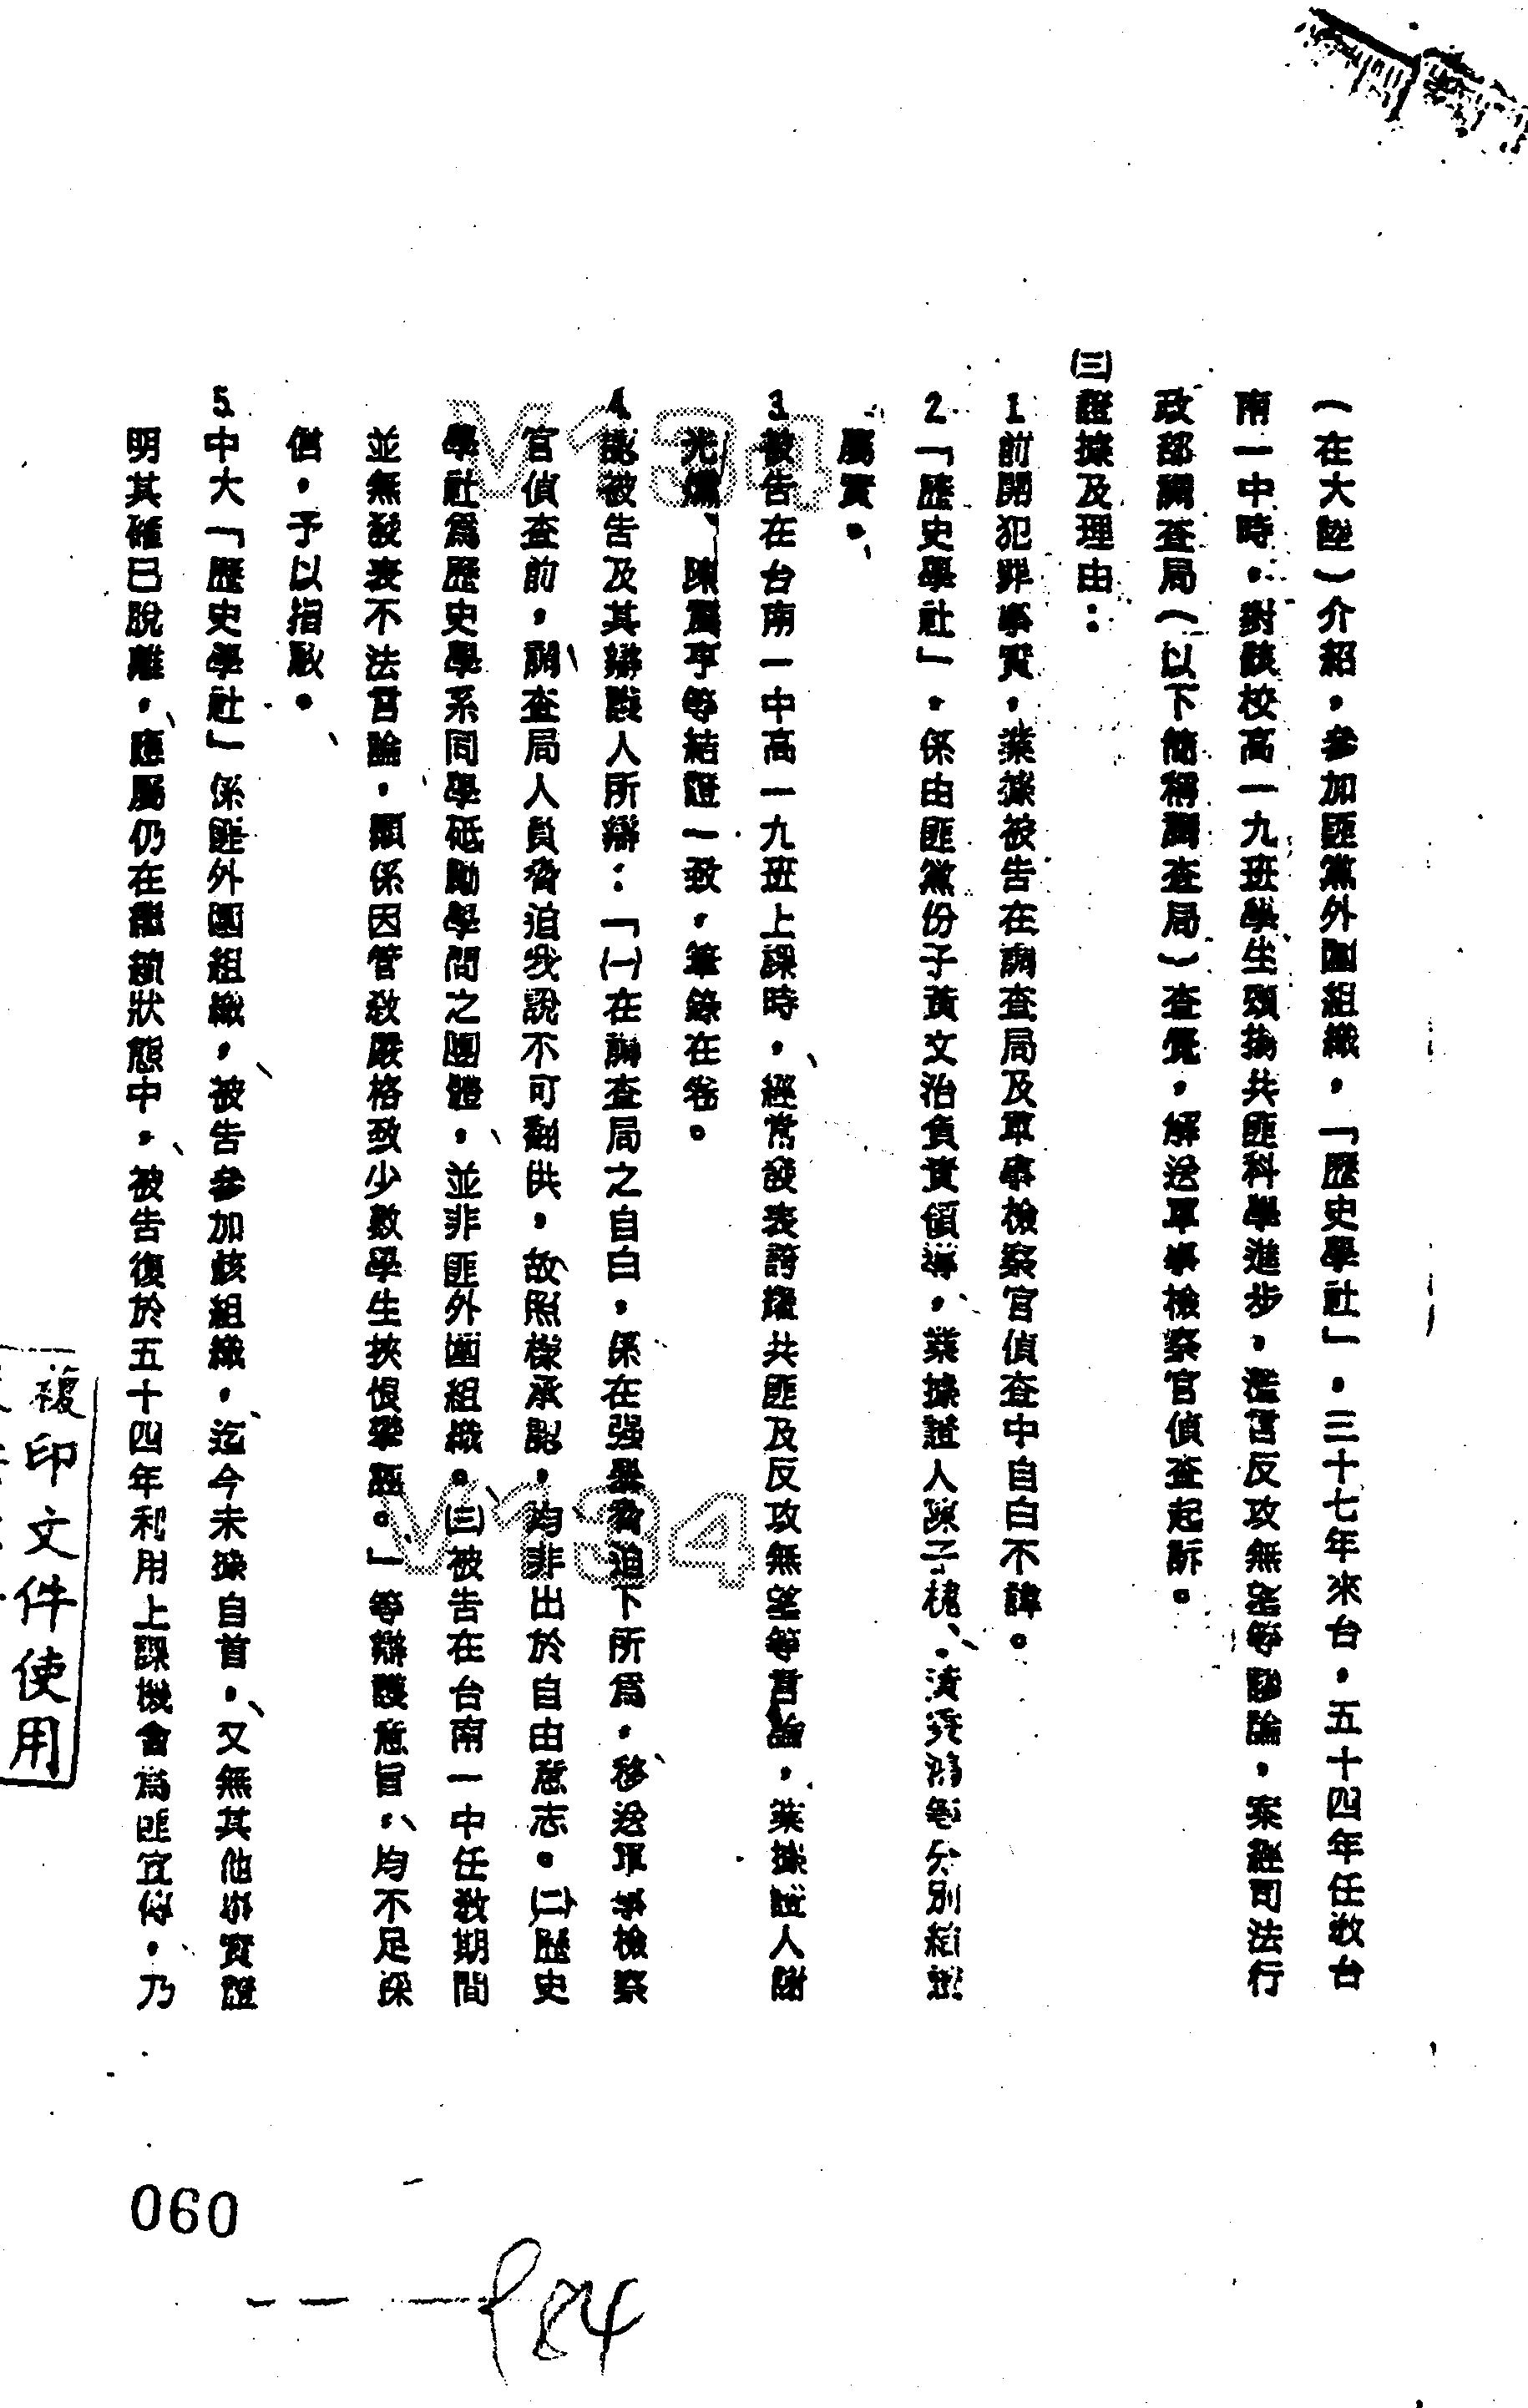 （在大陸）介紹，參加匪黨外圍組織，「歷史學社」，三十七年來台，五十四年任教台
南一中時，對該校高一九班學生頌揚共匪科學進步，濫言反攻無望等謬論，案經司法行
政部調查局（以下簡稱調查局）查覺，解送軍事檢察官偵查起訴。
㈢證據及理由：
1前開犯罪事實，業據被告在調查局及軍事檢察官偵查中自白不諱。
2「歷史學社」，係由匪黨份子黃文治負責領導，業據證人陳子 、 等分別結證
屬實。
3被告在台南一中高一九班上課時，經常發表誇耀共匪及反攻無望等言論，業據證人謝
光 、陳 亨等結證一致，筆錄在卷。
4認被告及其辯護人所辯：「㈠在調查局之自白，係在强暴脅迫下所爲，移送軍事檢察
官偵查前，調查局人員脅迫我說不可翻供，故照樣承認，均非出於自由意志。㈡歷史
學社爲歷史學系同學砥勵學問之團體，並非匪外圍組織。㈢被告在台南一中任教期間
並無發表不法言論，顯係因管教嚴格致少數學生挾恨 誣。」等辯護意旨，均不足採
信，予以指駁。
5中大「歷史學社」係匪外圍組織，被告參加該組織，迄今未據自首，又無其他事實證
明其確已脫離，應屬仍在繼續狀態中，被告復於五十四年利用上課機會爲匪宣傳，乃
複印文件使用
V134
V134
060
P84